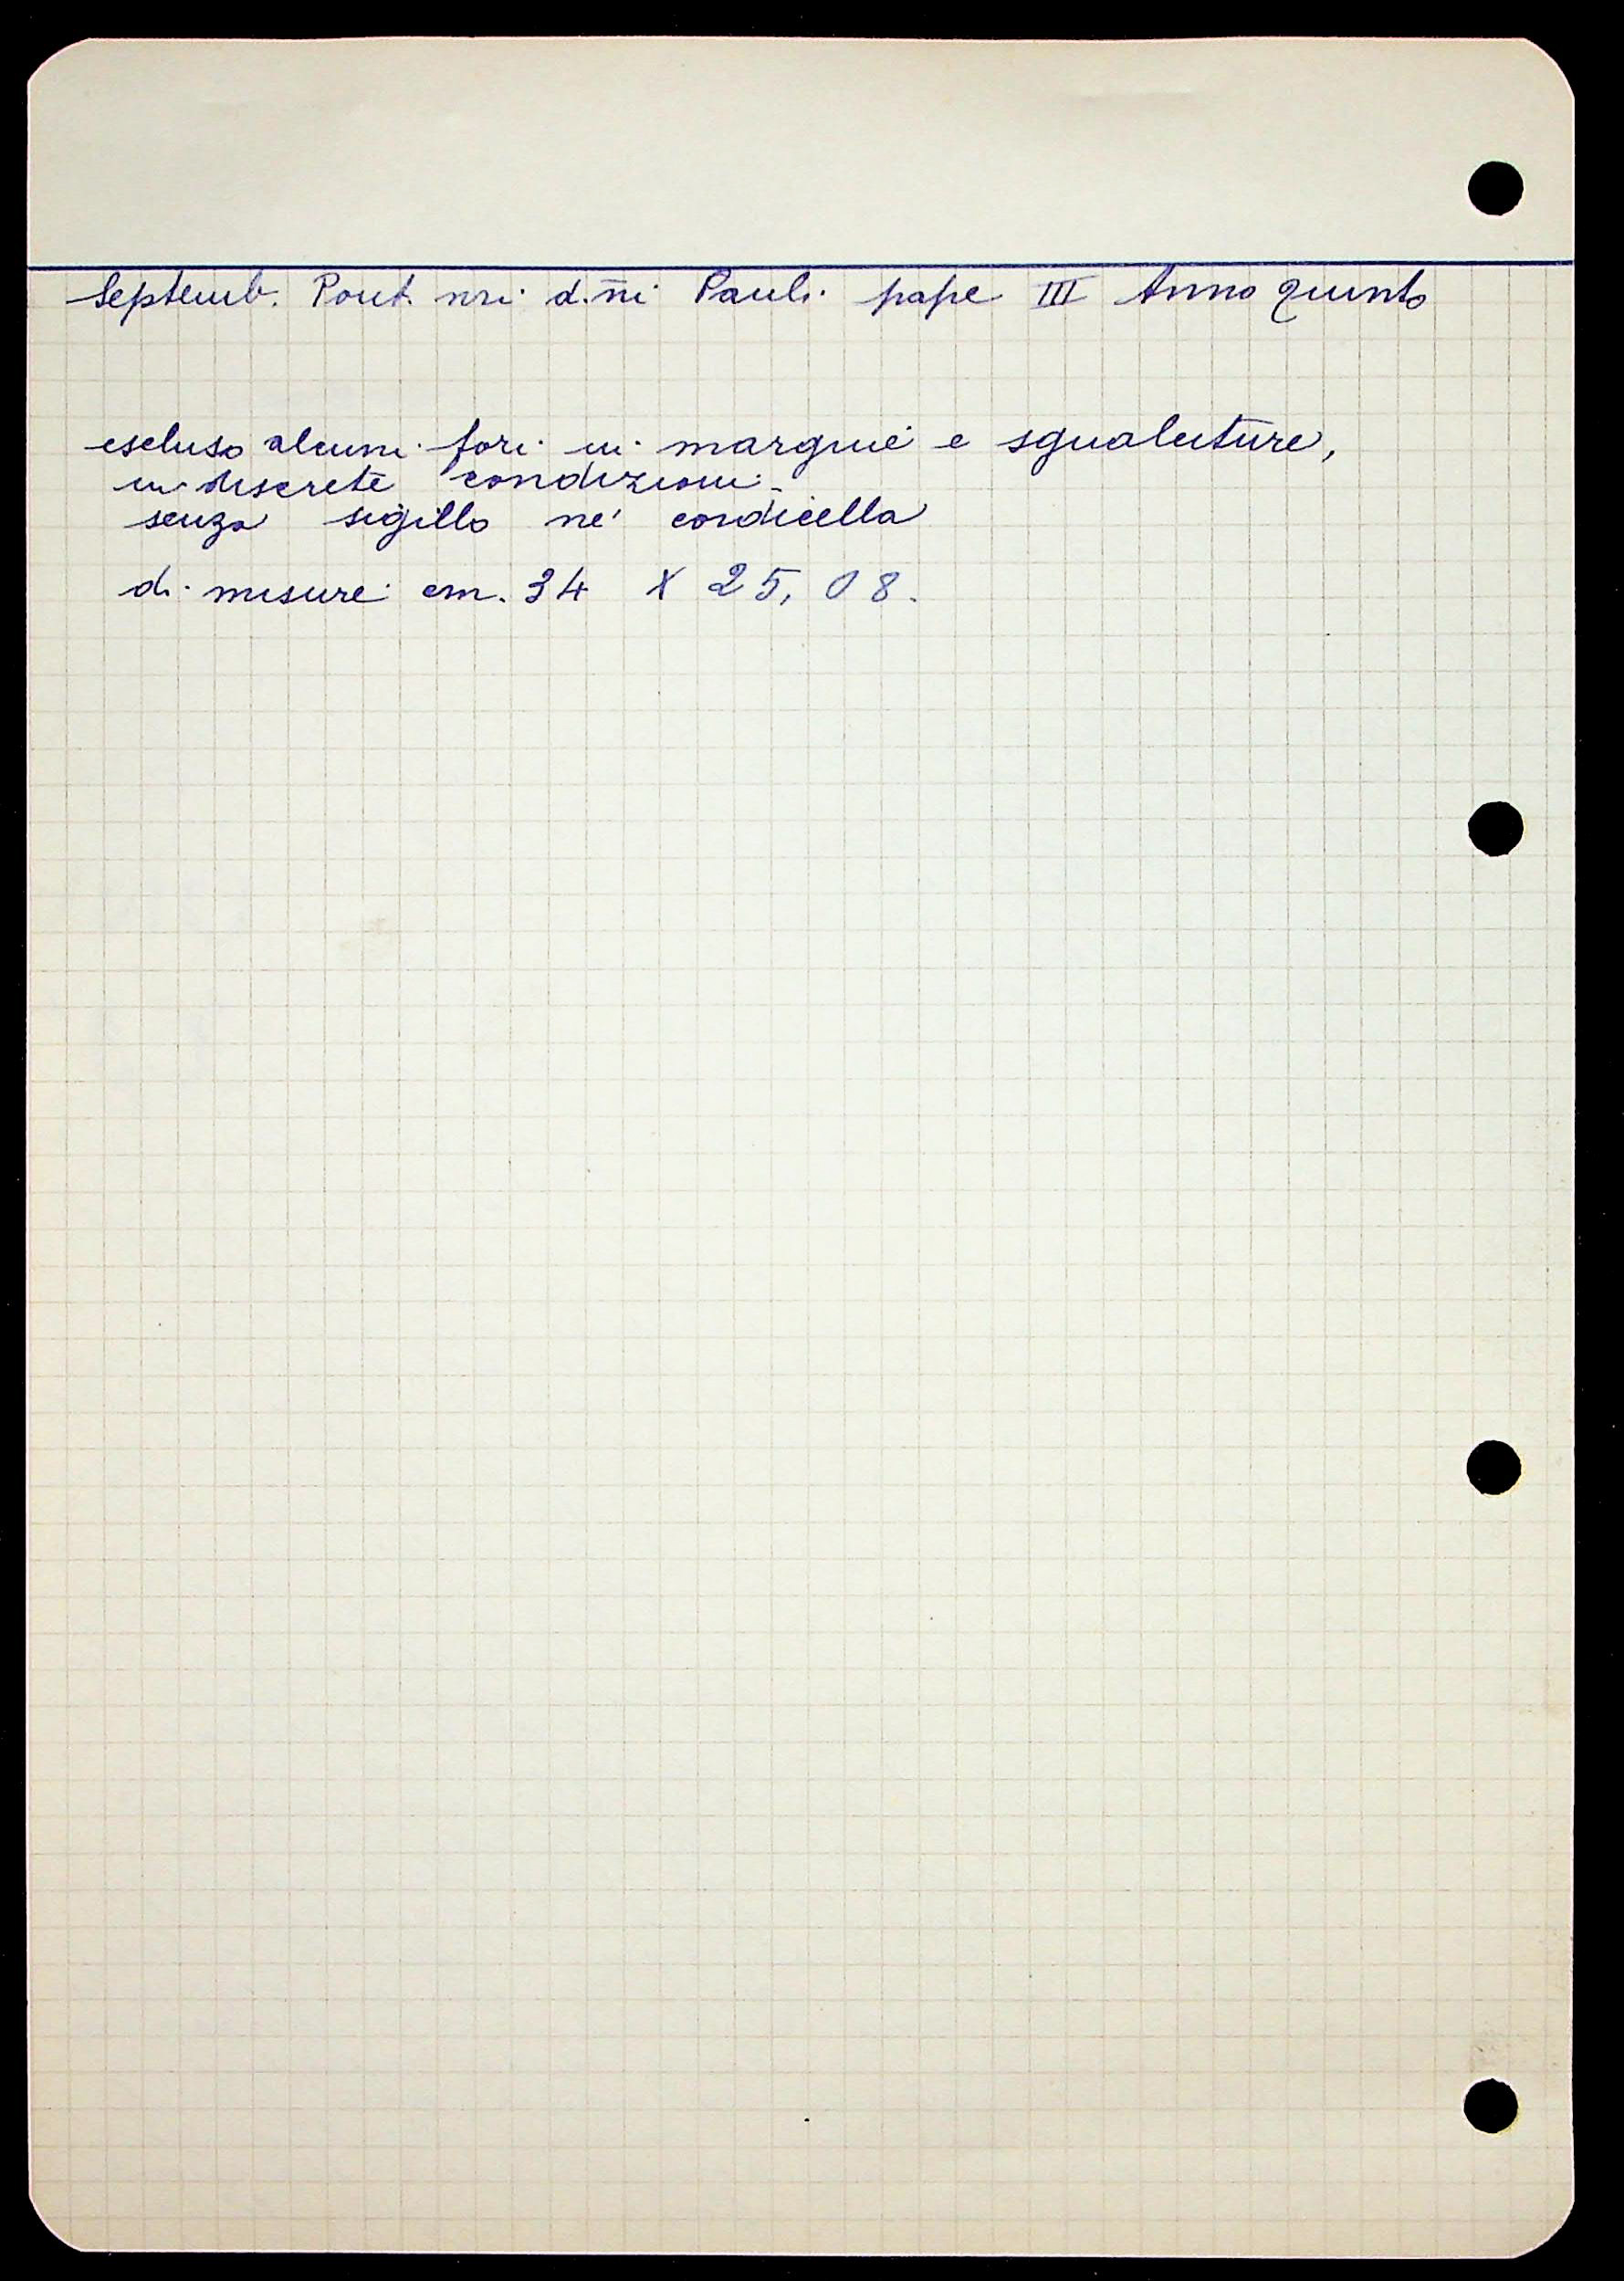 Septemb. Pont. nri d.ñi Pauli pape III Anno quinto
escluso alcuni fori in margine e squaliture,
in discrete condizioni -
senza sigillo ne' cordicella
di misure cm. 34 X 25,08.